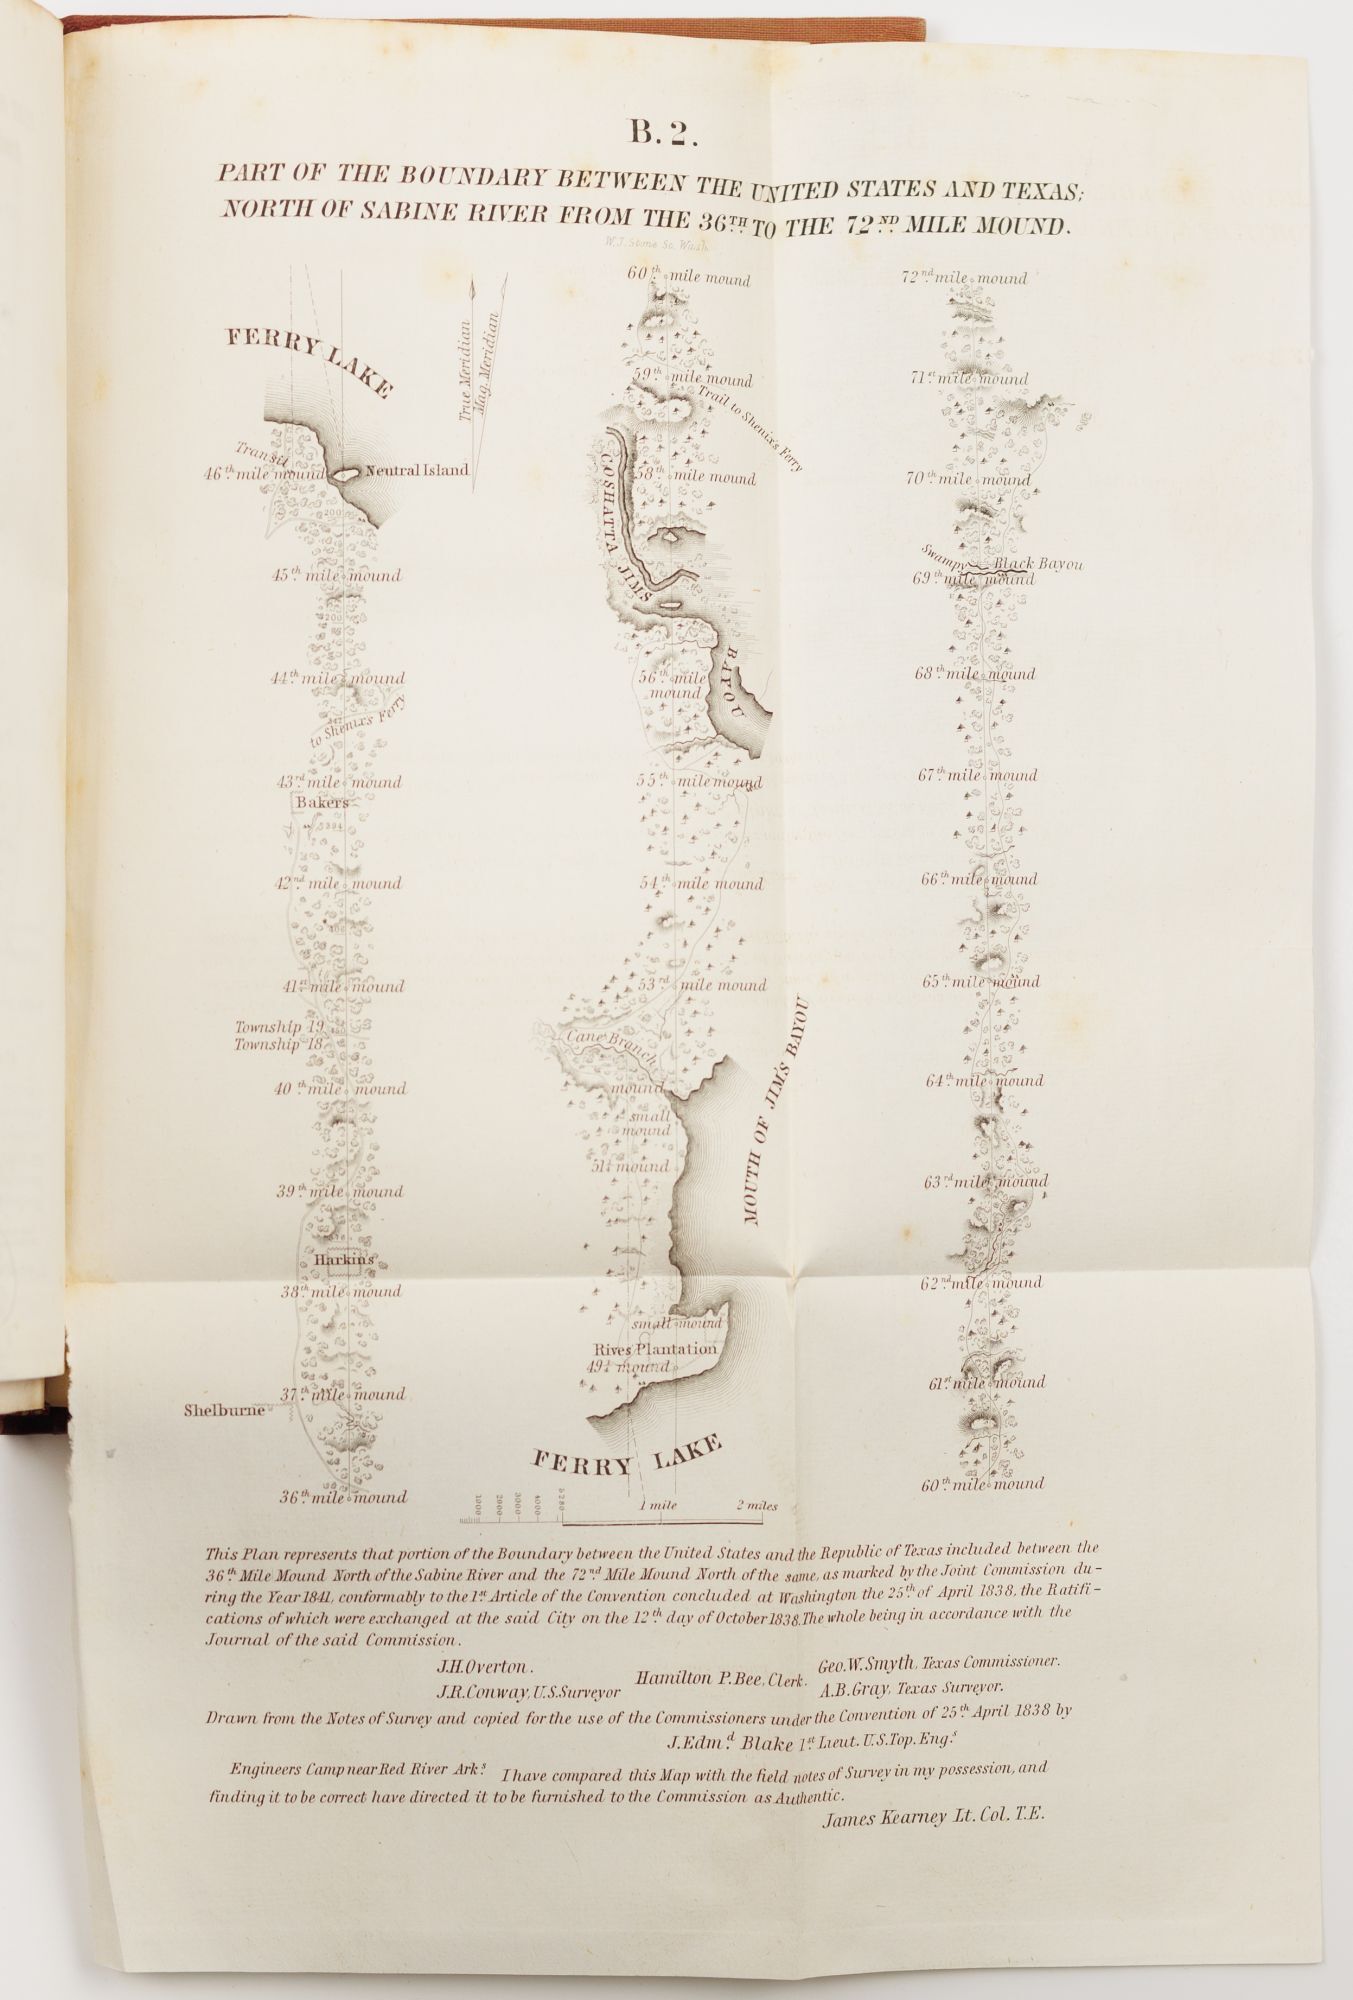 B. 2.
PART OF THE BOUNDARY BETWEEN THE UNITED STATES AND TEXAS;
NORTH OF SABINE RIVER FROM THE 36TH TO THE 72ND MILE MOUND.
W. J. Stone Sc. Wash.
FERRY LAKE
True Meridian
Mag. Meridian
Transit
46th mile mound
Neutral Island
200
45th mile mound
200
44th mile mound
to Shenix's Ferry
43rd mile mound
Bakers
42nd mile mound
41st mile mound
Township 19
Township 18
40th mile mound
39th mile mound
Harkins
38th mile mound
37th mile mound
Shelburne
36th mile mound
60th mile mound
59th mile mound
Trail to Shenix's Ferry
58th mile mound
COSHATTA JIMS BAYOU
56th mile
mound
55th mile mound
54th mile mound
53rd mile mound
Cane Branch
mound
small
mound
51½ mound
MOUTH OF JIMS BAYOU
small mound
Rives Plantation
49½ mound
FERRY LAKE
1000 2000 3000 4000 5280
1 mile 2 miles
72nd mile mound
71st mile mound
70th mile mound
Swampy
Black Bayou
69th mile mound
68th mile mound
67th mile mound
66th mile mound
65th mile mound
64th mile mound
63rd mile mound
62nd mile mound
61st mile mound
60th mile mound
This Plan represents that portion of the Boundary between the United States and the Republic of Texas included between the
36th Mile Mound North of the Sabine River and the 72nd Mile Mound North of the same, as marked by the Joint Commission du-
ring the Year 1841, conformably to the 1st Article of the Convention concluded at Washington the 25th of April 1838, the Ratifi-
cations of which were exchanged at the said City on the 12th day of October 1838. The whole being in accordance with the
Journal of the said Commission.
J.H. Overton.
J.R. Conway, U.S. Surveyor
Hamilton P. Bee, Clerk.
Geo. W. Smyth, Texas Commissioner.
A.B. Gray, Texas Surveyor.
Drawn from the Notes of Survey and copied for the use of the Commissioners under the Convention of 25th April 1838 by
J. Edmd. Blake 1st Lieut. U.S. Top. Engs
Engineers Camp near Red River Arks. I have compared this Map with the field notes of Survey in my possession, and
finding it to be correct have directed it to be furnished to the Commission as Authentic.
James Kearney Lt. Col. T.E.